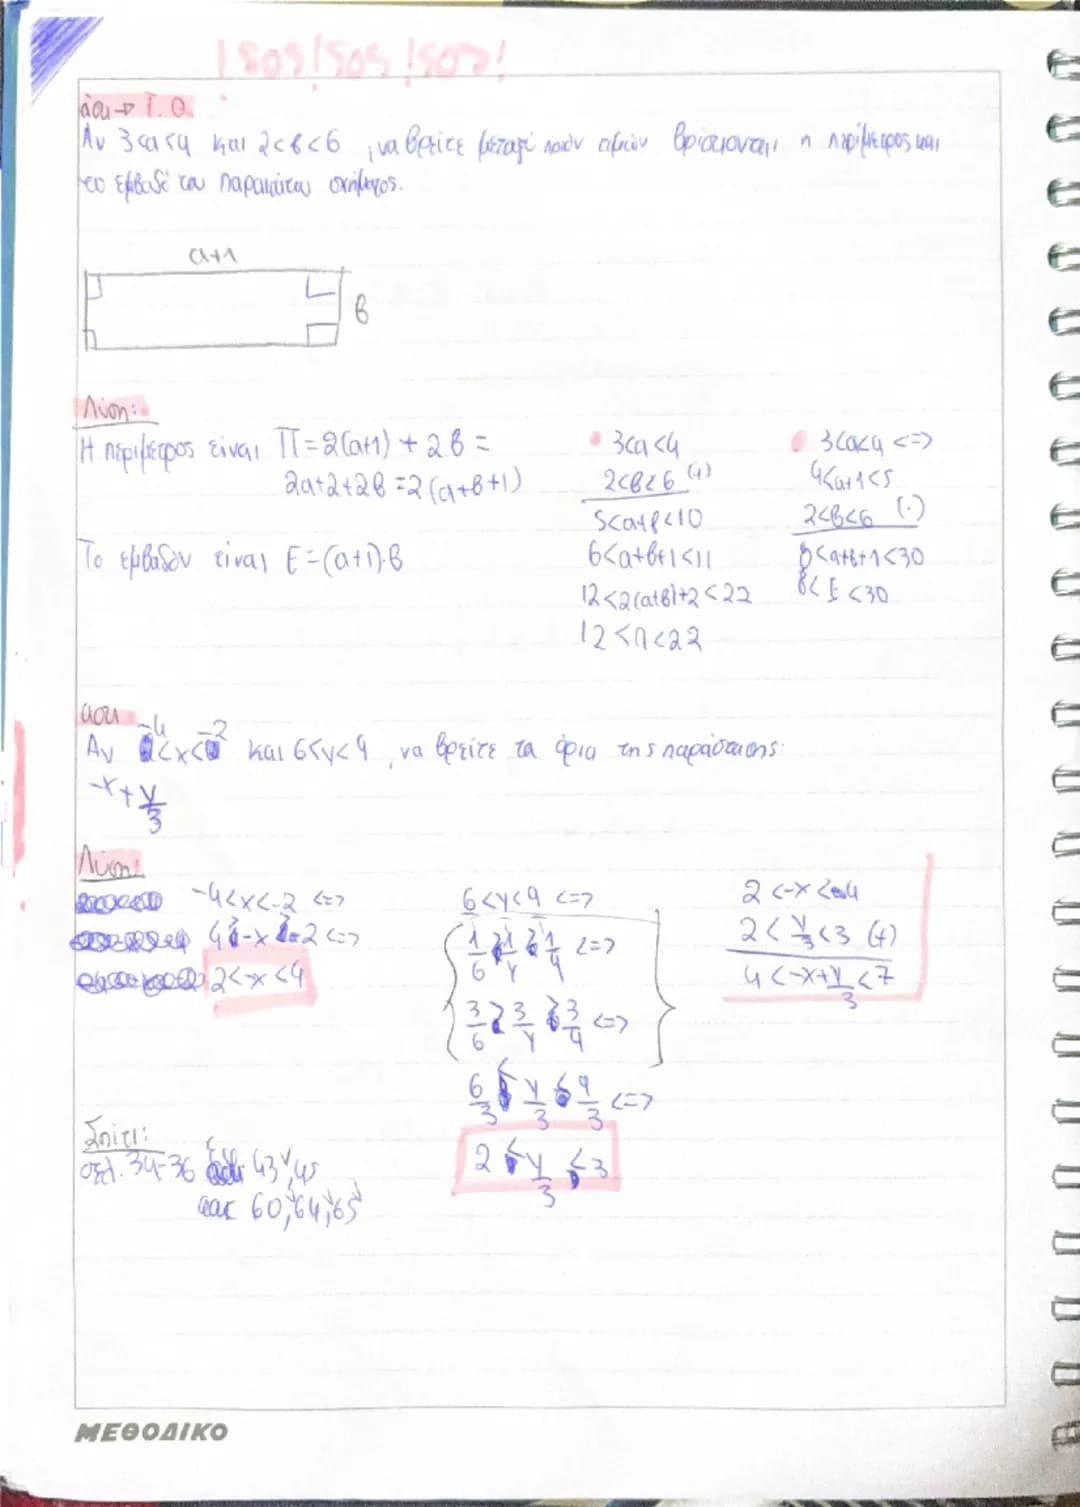 ! SOS! SOS !SOS!
άσκ → Τ.Θ.
Αν 3<α<4 και 2<β<6 , να βρείτε μεταξύ ποιών τιμών βρίσκονται η περίμετρος και
το εμβαδό του παρακάτω σχήματος.
α+1
β
Λύση:
Η περίμετρος είναι Π=2(α+1) + 2β =
2α+2+2β =2(α+β+1)
Το εμβαδόν είναι Ε=(α+1)·β
3<α<4
2<β<6 (+)
5<α+β<10
6<α+β+1<11
12<2(α+β)+2<22
12<Π<22
3<α<4 <=>
4<α+1<5
2<β<6 (·)
8<α+β+1<30
8< Ε <30
άσκ
Αν -4<x<-2 και 6<y<9 , να βρείτε τα όρια της παράστασης:
-x+y/3
Λύση:
-4<x<-2 <=>
4>-x>2 <=>
2<-x<4
6<y<9 <=>
1/6 > 1/y > 1/9 <=>
3/6 > 3/y > 3/9 <=>
6/3 < y/3 < 9/3 <=>
2 < y/3 < 3
2 <-x <4
2 < y/3 <3 (+)
4 <-x+y/3 <7
Σπίτι:
σελ. 34-36 43, 45
60, 64, 65
ΜΕΘΟΔΙΚΟ